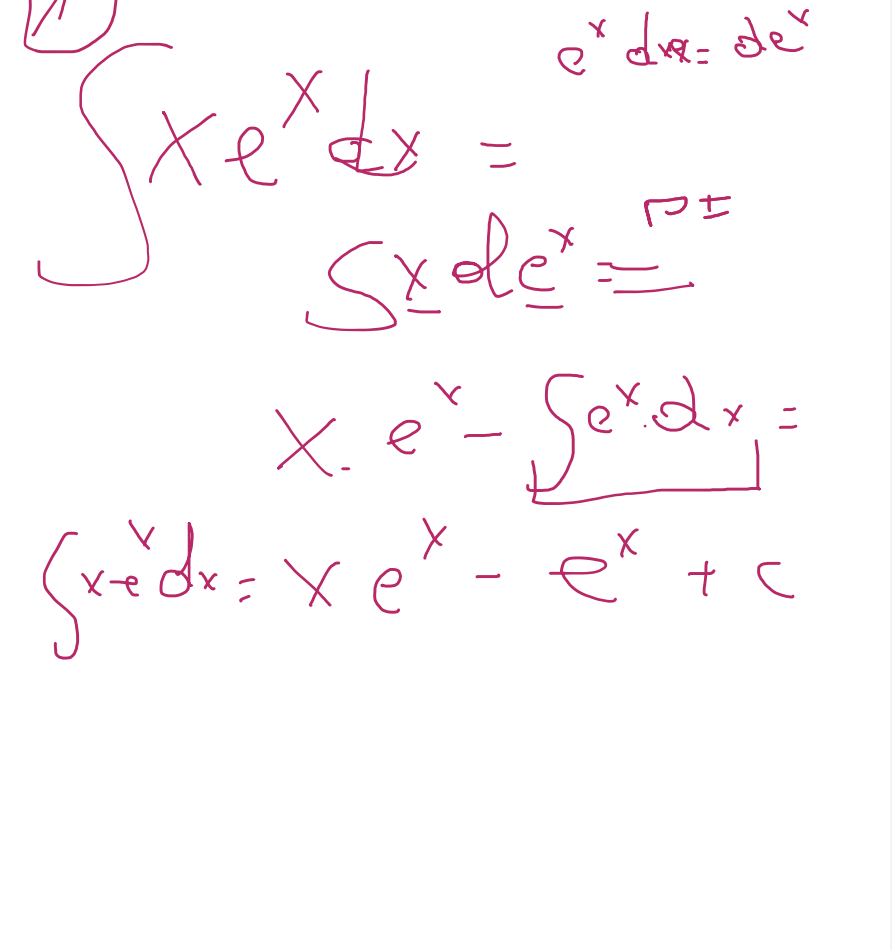 e^x dx = de^x
∫ x e^x dx =
∫ x de^x =
x · e^x - ∫ e^x · dx =
∫ x e^x dx = x e^x - e^x + c